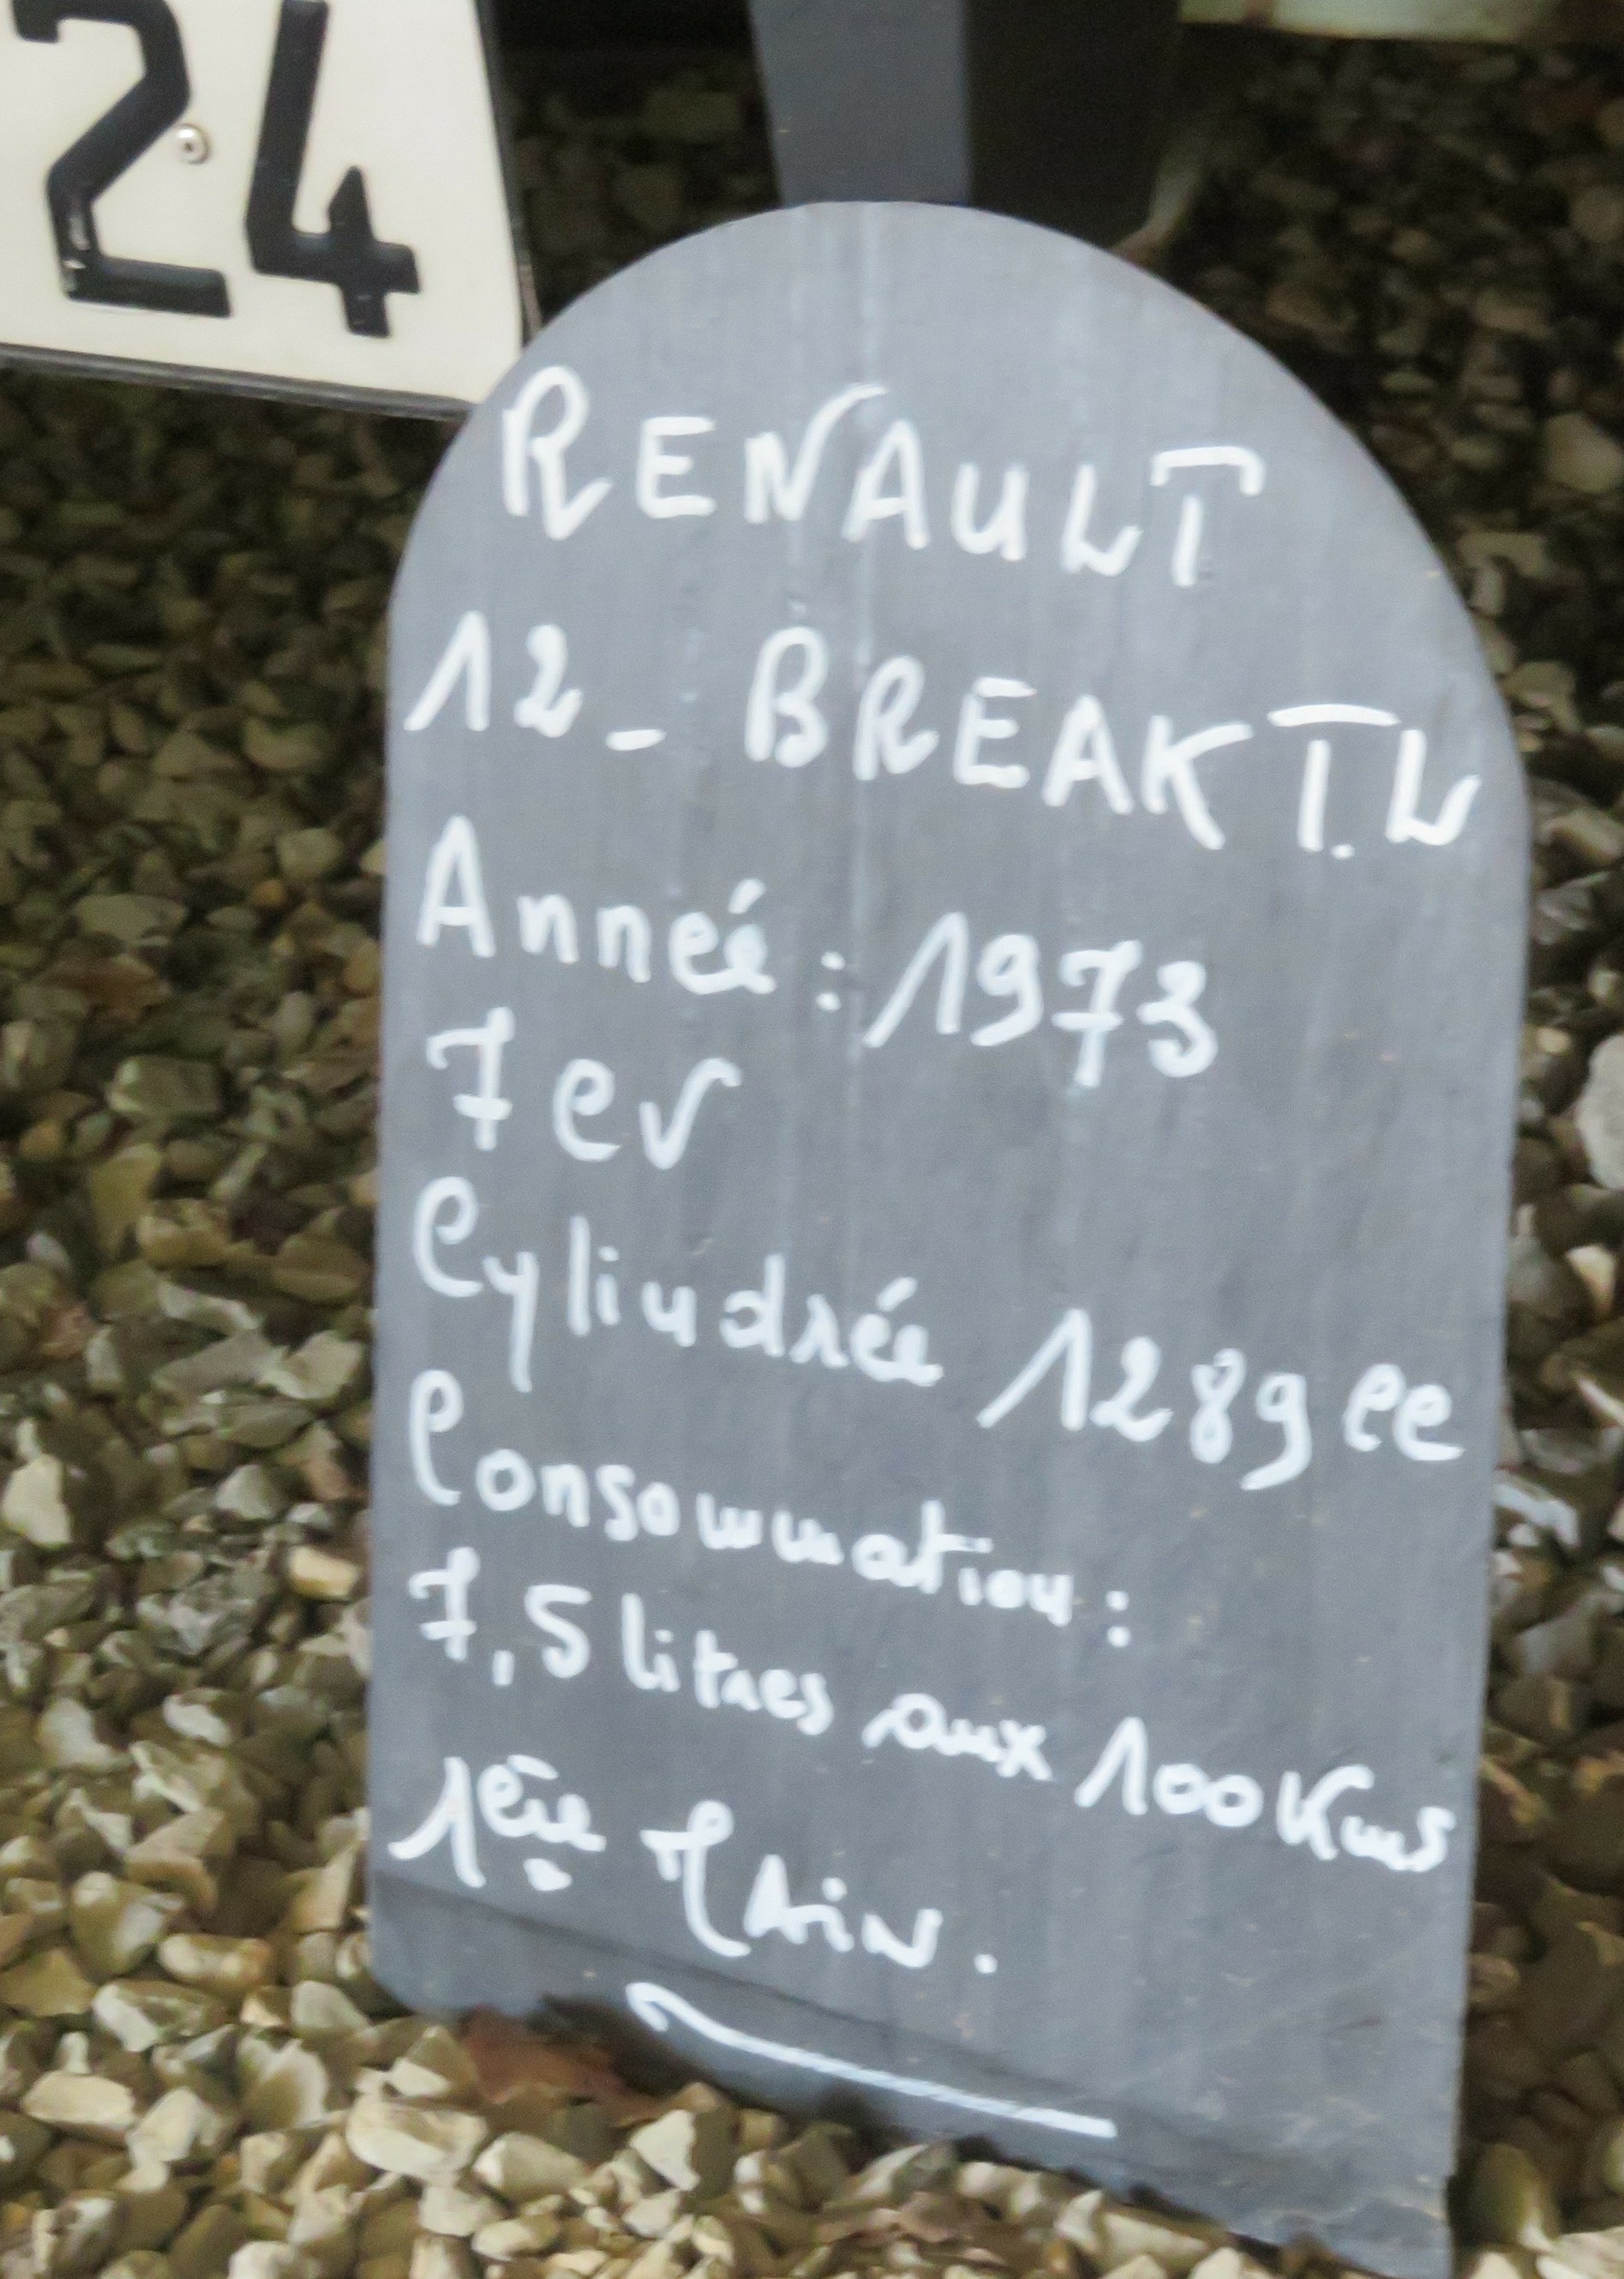 24
RENAULT
12_ BREAK T.L
Anneé : 1973
7 CV
Cylindrée 1289 cc
Consommation :
7,5 litres aux 100 Kms
1ère MAiN.